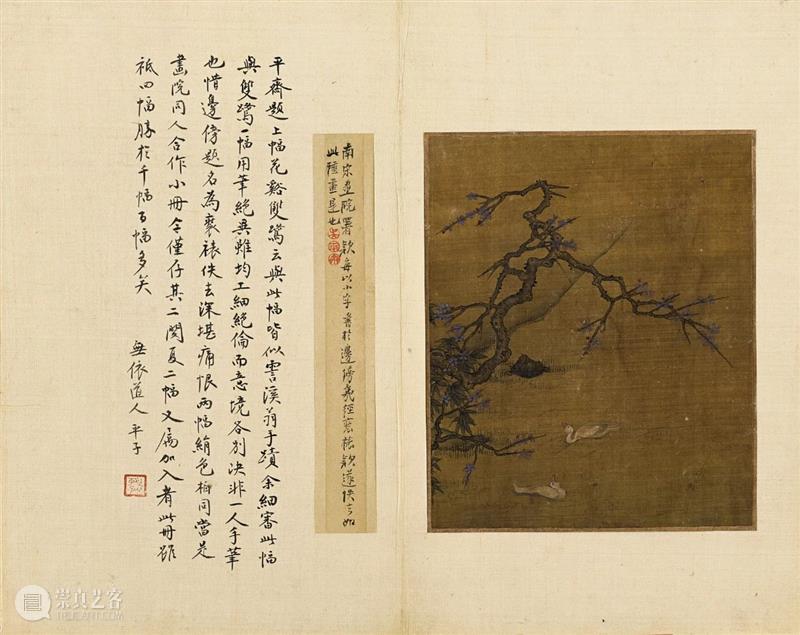 南宋畫院署款每以小字書於邊傍幾經裝裱款遂佚之如
此種畫是也
平齋題上幅花谿雙鷺云與此幅皆似霅溪翁手蹟余細審此幅
與雙鷺一幅用筆絕異雖均工細絕倫而意境各別決非一人手筆
也惜邊傍題名為裝裱佚去深堪痛恨兩幅絹色相同當是
畫院同人合作小冊今僅存其二閻夏二幅又屬加入者此冊雖
祗四幅勝於千幅百幅多矣
無依道人 平子
崇真艺客
TRUEART.COM